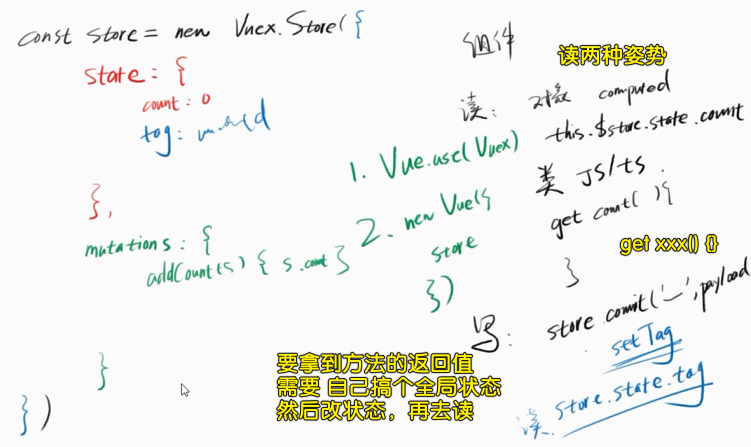 const store = new Vuex.Store({
state: {
count: 0
tag:
},
mutations: {
addCount(s) { s.count }
}
})
1. Vue.use(Vuex)
2. new Vue({
store
})
组件
读两种姿势
读: 对象 computed
this.$store.state.count
类 JS/ts
get count( ){
}
get xxx() {}
写: store.commit('—',payload
setTag
读. store.state.tag
要拿到方法的返回值
需要 自己搞个全局状态
然后改状态，再去读